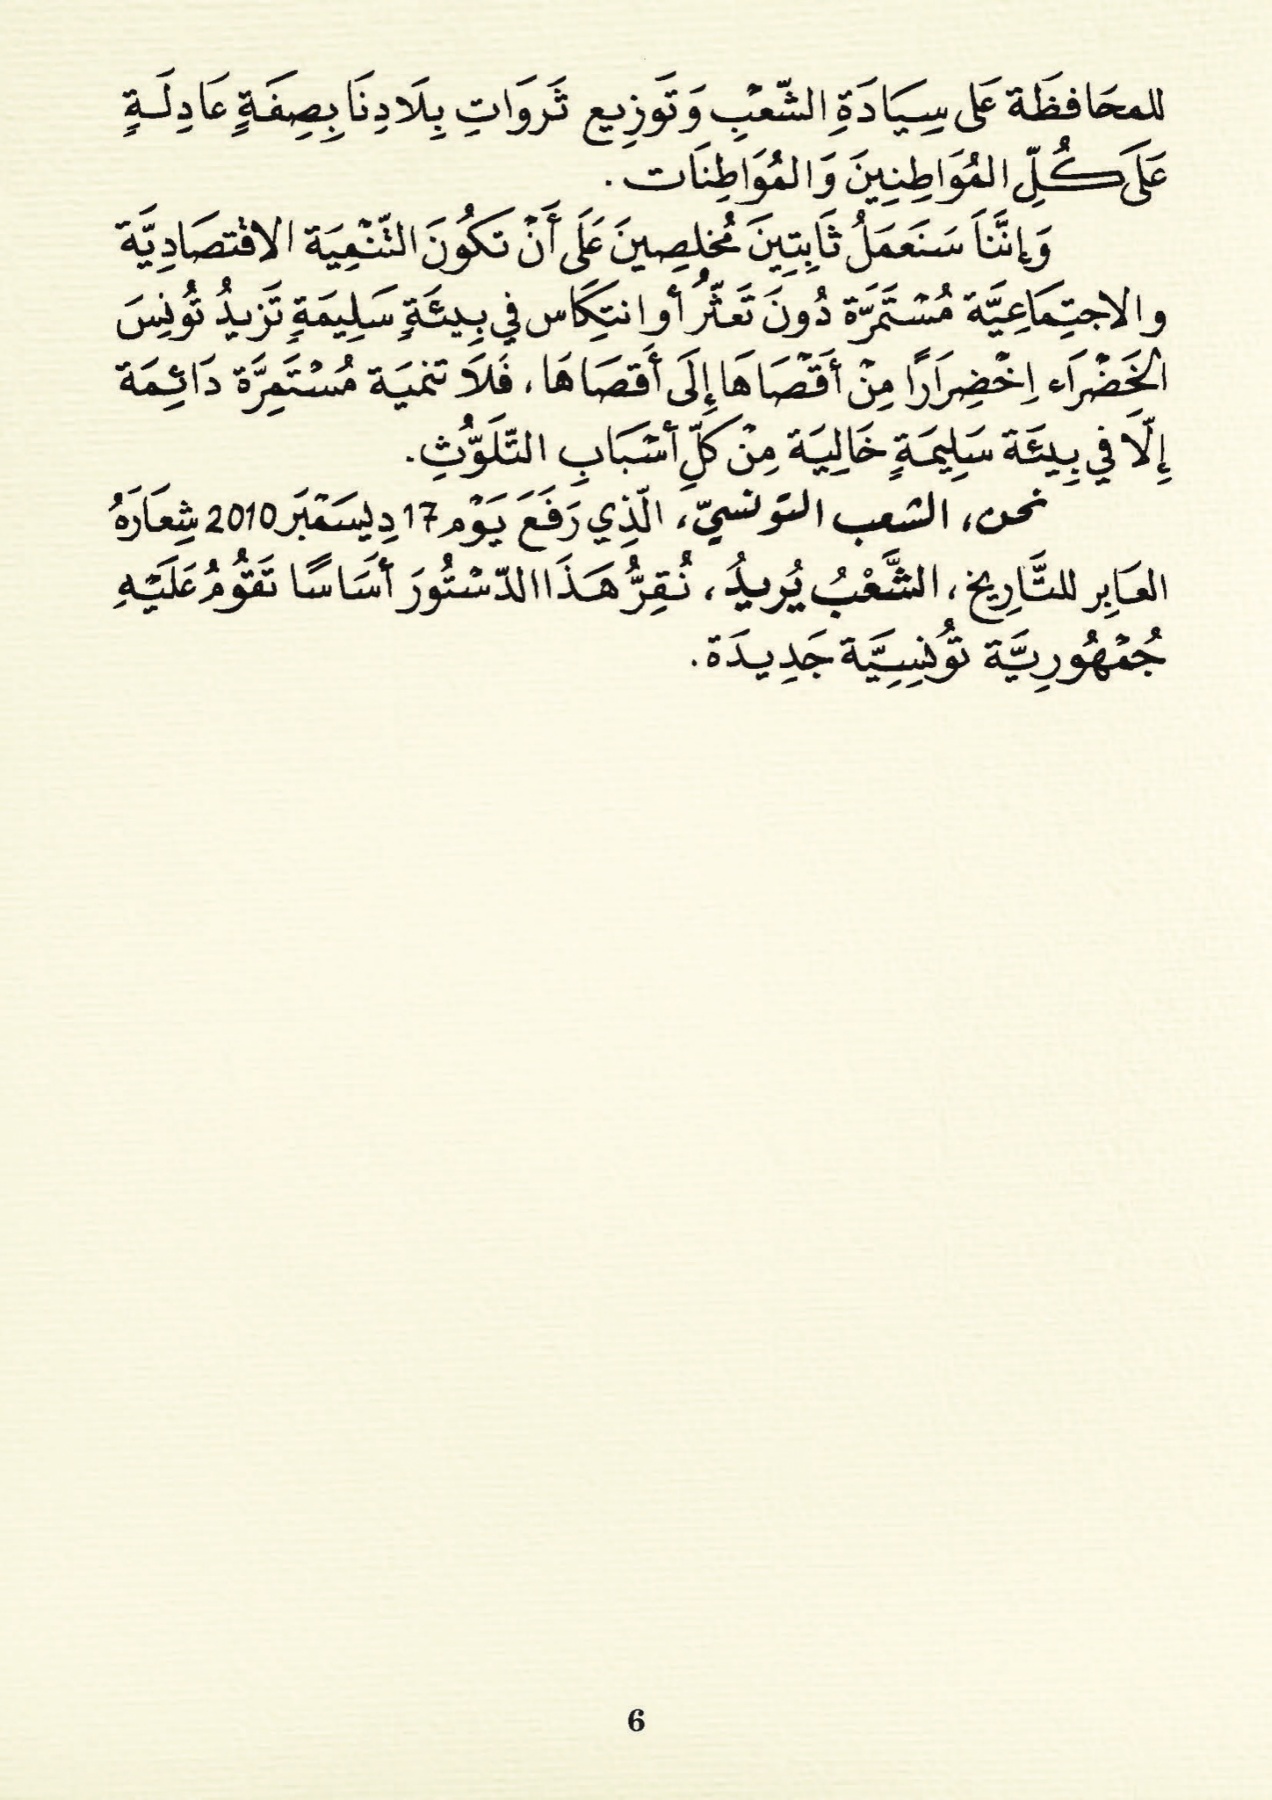 للمحَافظَة عَلى سِيَادَةِ الشّعْبِ وَتَوزِيع ثَروَاتِ بِلَادِنَا بِصِفَةٍ عَادِلَةٍ
عَلَى كُلِّ المُوَاطِنِينَ وَالمُوَاطِنَات .
وَإِنَّنَا سَنَعمَلُ ثَابِتِينَ مُخلِصِينَ عَلَى أَنْ تَكُونَ التّنْمِيَة الاقتصَادِيَّة
والاجتِمَاعِيَّة مُسْتَمَرَّة دُونَ تَعَثّرُ أو انتِكَاس في بِيئَةٍ سَلِيمَةٍ تَزيدُ تُونِسَ
الخَضْرَاء اِخْضِرَارًا مِنْ أَقْصَاهَا إِلَى أَقصَاهَا، فَلاَ تنميَة مُسْتَمِرَّة دَائِمَة
إِلَّا في بِيئَة سَلِيمَةٍ خَالِيَة مِنْ كلِّ أسْبَابِ التَّلَوُّثِ.
نحن، الشعب التونسيّ، الّذِي رَفَعَ يَوْم 17 دِيسَمْبَر 2010 شِعَارَهُ
العَابِر للتَّارِيخ، الشَّعْبُ يُرِيدُ، نُقِرُّ هَذَا الدّسْتُورَ أسَاسًا تَقُومُ عَلَيْهِ
جُمْهُورِيَّة تُونِسِيَّة جَدِيدَة.
6